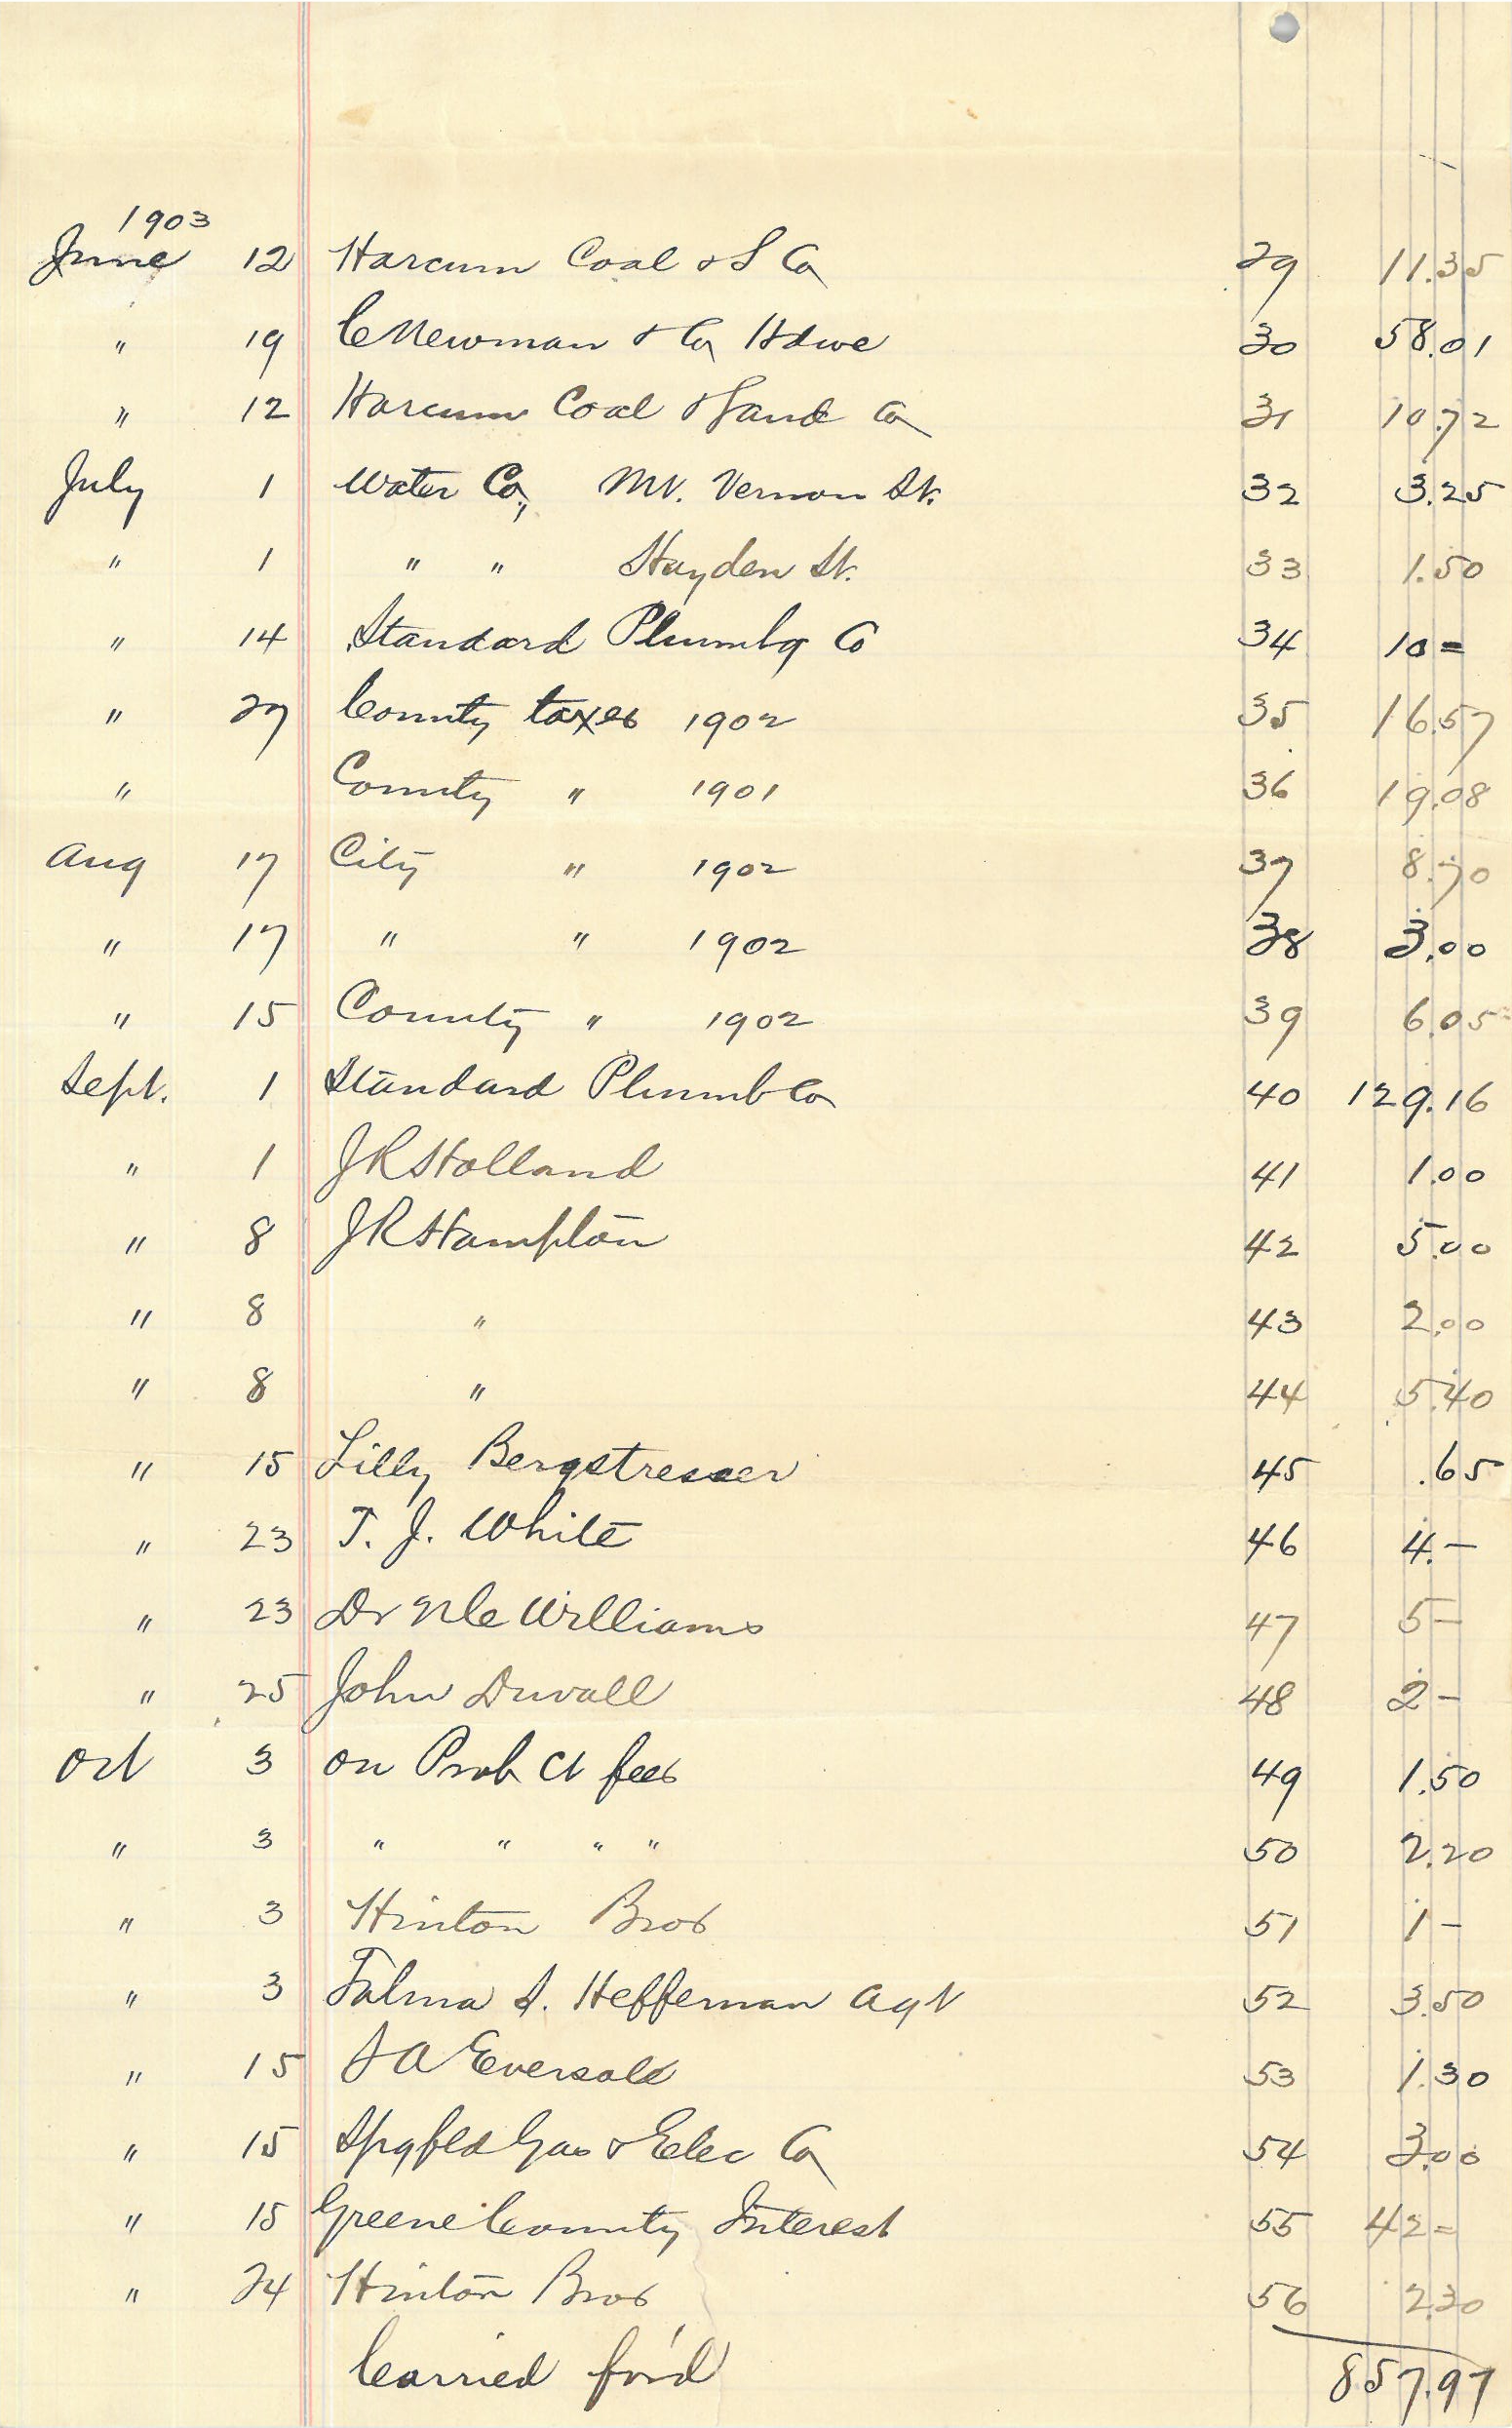 1903
June 12 Harcum Coal & S Co 29 11.35
" 19 C Newman & Co Hdwe 30 58.01
" 12 Harcum Coal & Sand Co 31 10.72
July 1 Water Co, Mt. Vernon St. 32 3.25
" 1 " " Hayden St. 33 1.50
" 14 Standard Plumbg Co 34 10 =
" 27 County taxes 1902 35 16.57
" County " 1901 36 19.08
Aug 17 City " 1902 37 8.70
" 17 " " 1902 38 3.00
" 15 County " 1902 39 6.05
Sept. 1 Standard Plumb Co 40 129.16
" 1 J R Holland 41 1.00
" 8 J R Hampton 42 5.00
" 8 " 43 2.00
" 8 " 44 5.40
" 15 Lilly Bergstresser 45 .65
" 23 T. J. White 46 4.-
" 23 Dr Williams 47 5-
" 25 John Duvall 48 2-
Oct 3 on Prob Ct fees 49 1.50
" 3 " " " " 50 2.20
" 3 Hinton Bros 51 1-
" 3 S. Heffernan Agt 52 3.50
" 15 Eversole 53 1.30
" 15 Spgfld Gas & Elec Co 54 3.00
" 15 Greene County Interest 55 42=
" 24 Hinton Bros 56 2.30
Carried for'd 857.97